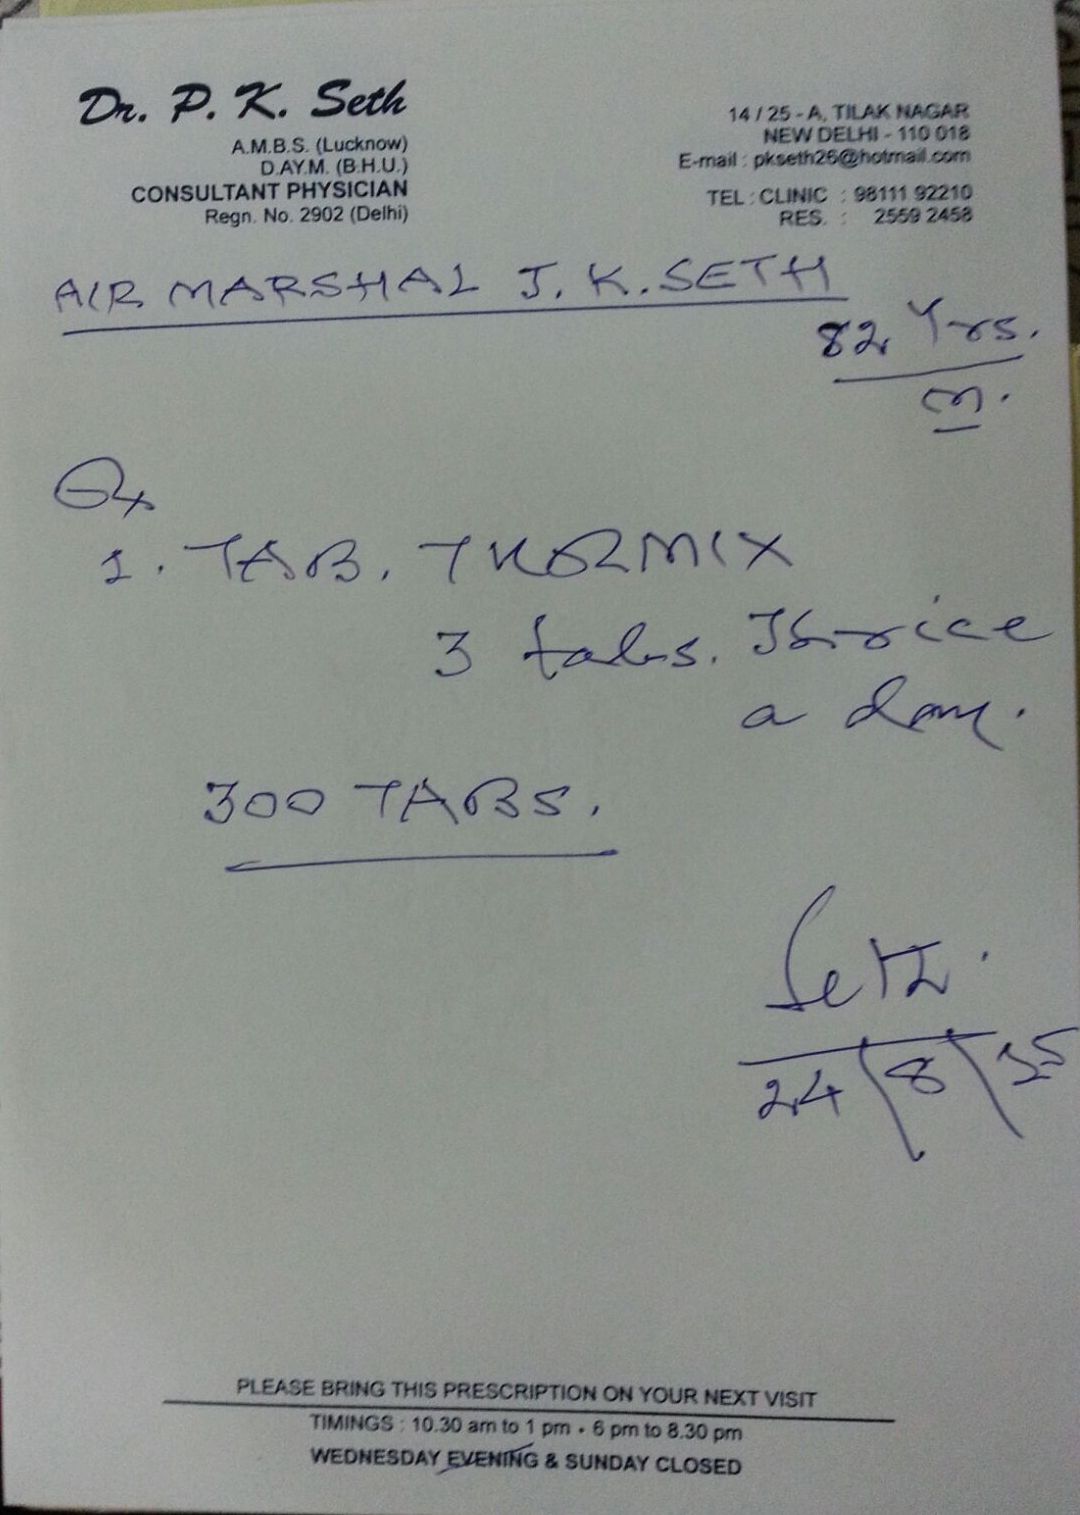 Dr. P. K. Seth
A.M.B.S. (Lucknow)
D.AY.M. (B.H.U.)
CONSULTANT PHYSICIAN
Regn. No. 2902 (Delhi)
14 / 25 - A, TILAK NAGAR
NEW DELHI - 110 018
E-mail : pkseth26@hotmail.com
TEL : CLINIC : 98111 92210
RES. : 2559 2458
AIR MARSHAL J. K. SETH
82 Yrs.
M.
Rx
1. TAB.
3 tabs. Thrice
a day.
300 TABS.
Seth.
24/8/15
PLEASE BRING THIS PRESCRIPTION ON YOUR NEXT VISIT
TIMINGS : 10.30 am to 1 pm - 6 pm to 8.30 pm
WEDNESDAY EVENING & SUNDAY CLOSED